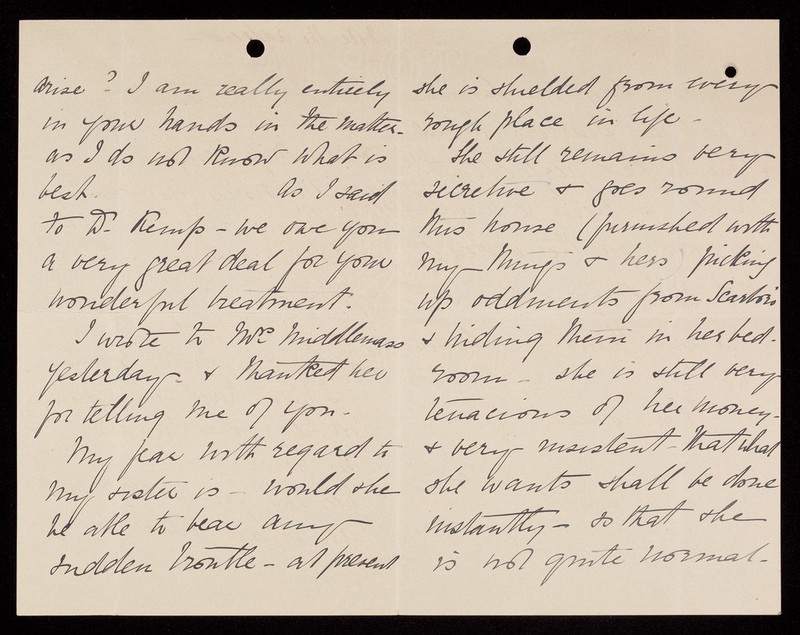 arise? I am really entirely
in your hands in the matter -
as I do not know what is
best. As I said
to Dr. Kemp - we owe you
a very great deal for your
wonderful treatment.
I wrote to Mrs Middlemass
yesterday - & thanked her
for telling me of you.
My fear with regard to
my sister is - would she
be able to bear any
sudden trouble - at present
she is shielded from every
rough place in life -
She still remains very
secretive & goes round
this house (furnished with
my things & hers) picking
up oddments from Scarboro
& hiding them in her bed-
room - she is still very
tenacious of her money -
& very insistent - that what
she wants shall be done
instantly - so that she
is not quite normal -